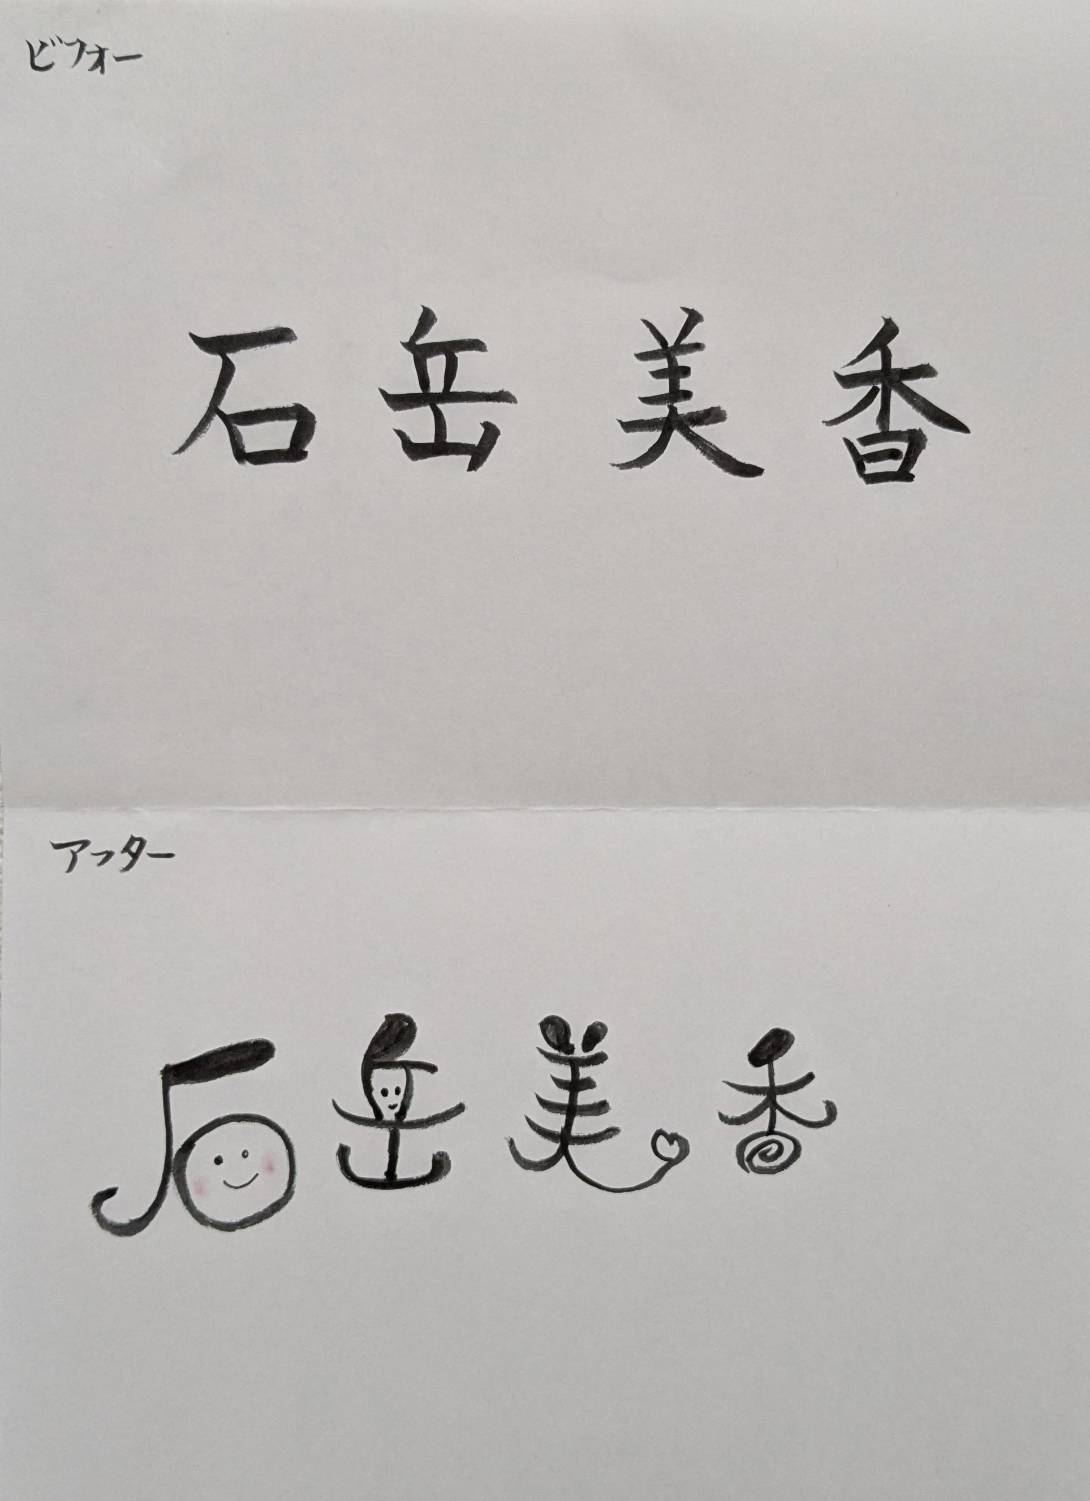 ビフォー
石岳美香
アフター
石岳美香